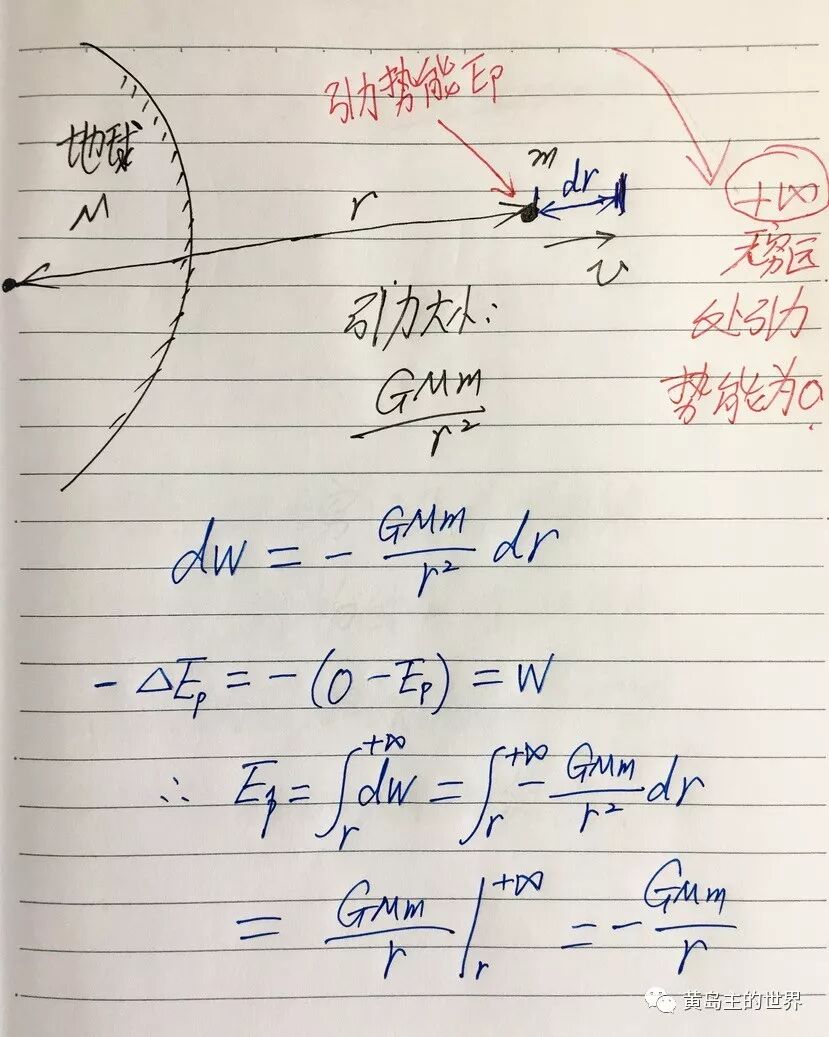 引力势能Ep
地球
M
r
m
dr
v
+∞
无穷远
处引力
势能为0.
引力大小:
GMm
r²
dW = - GMm/r² dr
- ΔEp = - (0 - Ep) = W
∴ Ep = ∫r+∞ dW = ∫r+∞ - GMm/r² dr
= GMm/r |r+∞ = - GMm/r
黄岛主的世界